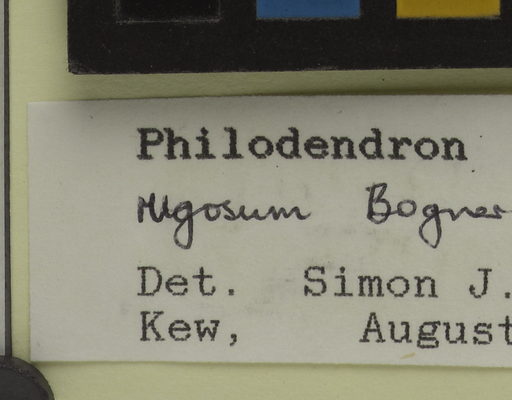 Philodendron
rugosum Bogner
Det. Simon J.
Kew, August